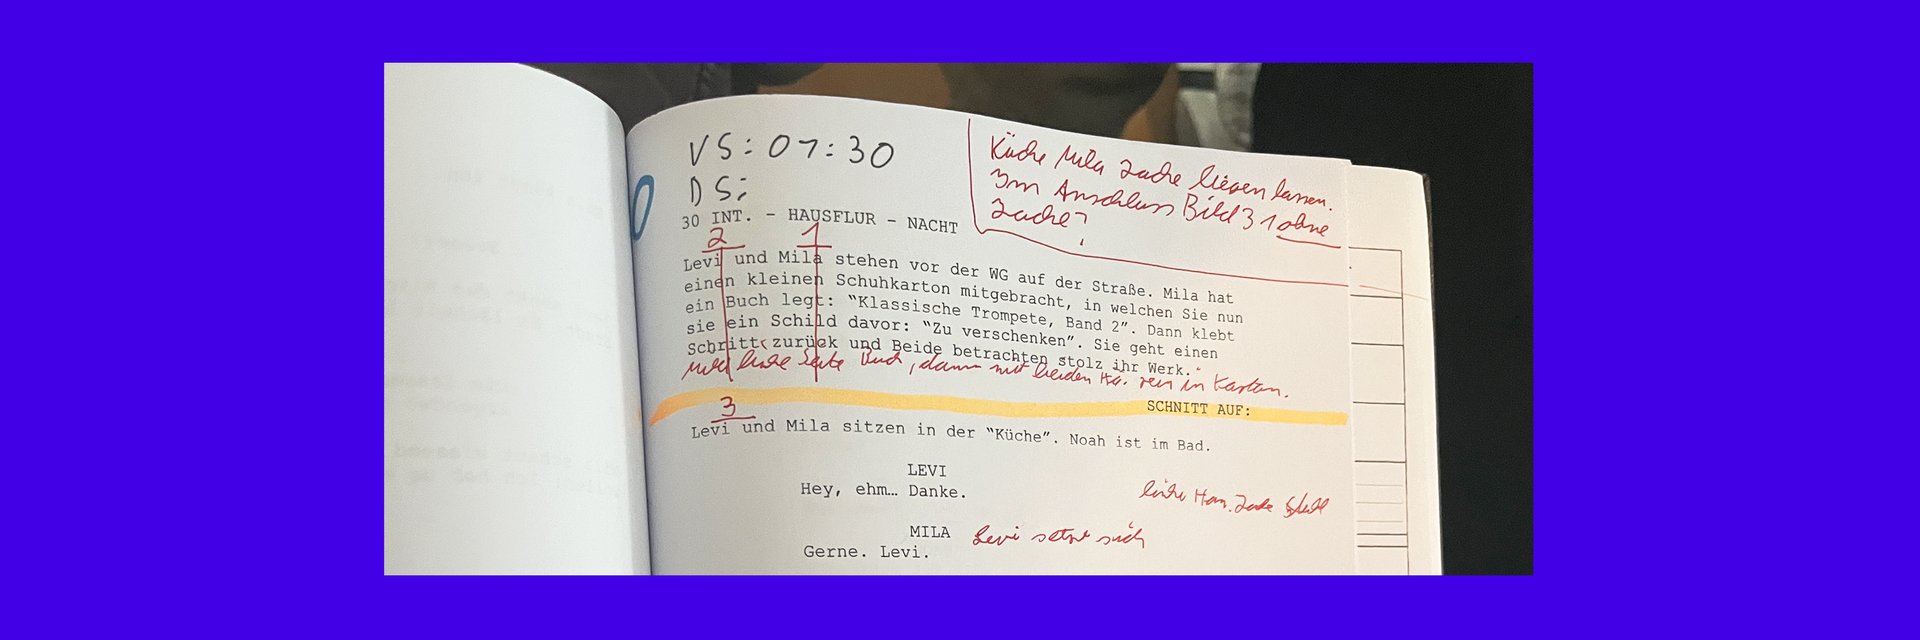 VS: 07:30
DS:
Küche Mila Jacke liegen lassen.
Im Anschluss Bild 31 ohne
Jacke?
30 INT. - HAUSFLUR - NACHT
2 1
Levi und Mila stehen vor der WG auf der Straße. Mila hat
einen kleinen Schuhkarton mitgebracht, in welchen Sie nun
ein Buch legt: “Klassische Trompete, Band 2”. Dann klebt
sie ein Schild davor: “Zu verschenken”. Sie geht einen
Schritt zurück und Beide betrachten stolz ihr Werk.
Seite Buch, dann mit beiden rein in Karton.
SCHNITT AUF:
3
Levi und Mila sitzen in der “Küche”. Noah ist im Bad.
LEVI
Hey, ehm… Danke.
MILA
Levi setzt sich
Gerne. Levi.